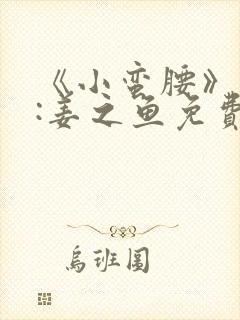 《小蛮腰》
:姜之鱼免費
烏班图